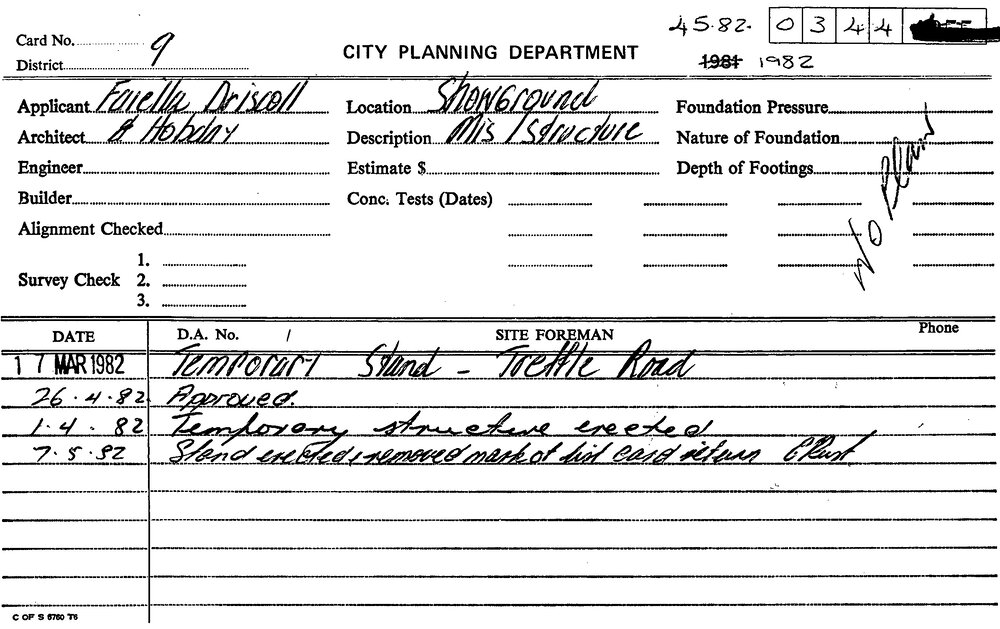 45.82. 0 3 4 4
Card No. 9
District
CITY PLANNING DEPARTMENT
1981 1982
Applicant Faiella Driscoll
Location Showground
Foundation Pressure
Architect & Hobday
Description Mis / Structure
Nature of Foundation
Engineer
Estimate $
Depth of Footings
Builder
Conc. Tests (Dates)
Alignment Checked
Survey Check
1.
2.
3.
DATE D.A. No. / SITE FOREMAN Phone
17 MAR 1982 Temporary Stand - Road
26.4.82 Approved.
1.4.82 Temporary structure erected
7.5.82 Stand erected & removed mark of list card return
C OF S 6760 T6